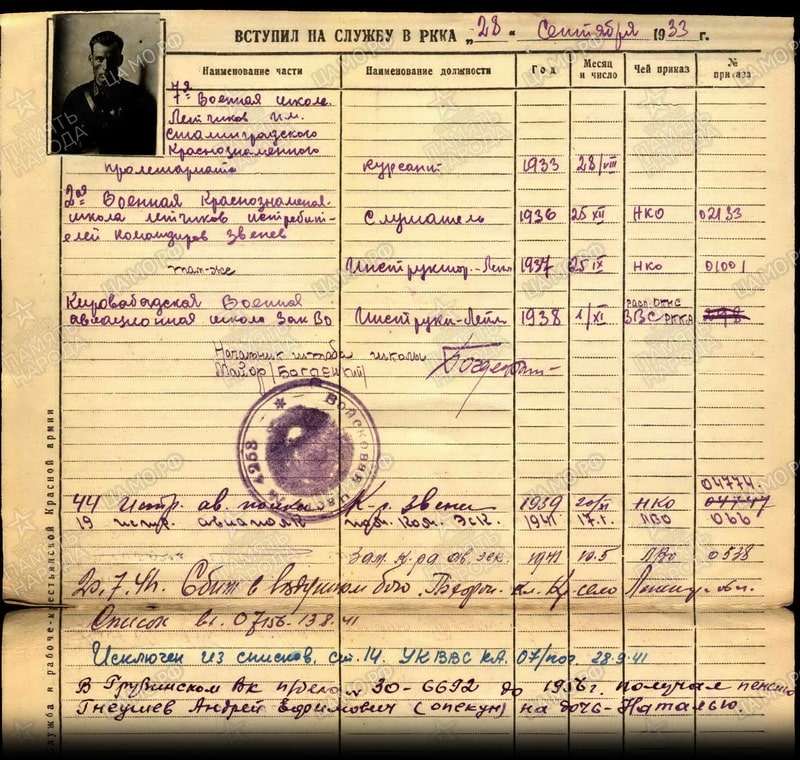 ВСТУПИЛ НА СЛУЖБУ В РККА „28“ Сентября 1933 г.
Наименование части Наименование должности Год Месяц и число Чей приказ № приказа
7ая Военная школа
Летчиков им.
Сталинградского
Краснознаменного
пролетариата курсант 1933 28/VIII
2ая Военная Краснознамен.
школа летчиков истребит-
елей командиров звеньев Слушатель 1936 25 XII НКО 02133
там-же Инструктор-Летч 1937 25 IX НКО 01001
Кировабадская Военная
авиационная школа ЗакВО Инструкт-Летч 1938 1/XI ВВС РККА
Начальник штаба школы
Майор /Богдецкий/
Войсковая часть 4258
04774.
44 Истр. ав. полка К-р. Звена 1939 НКО 04747
19 истр. авиаполк Ком. Эск. 1941 17.1. ЛВО 066
Зам. к-ра ав. эск. 1941 14.5 ЛВО 0538
20.7.41. Сбит в воздушном бою село
Список вх. 07156-13.8.41
Исключен из списков. ст. 14. УК ВВС КА. 28.9.41
В Грубинском Вк п/дело № 30-6692 до 1956 г. получал пенсию
Гнеушев Андрей Ефимович (опекун) на дочь-Наталью.
Служба в рабоче-крестьянской Красной армии
ПАМЯТЬ НАРОДА
ЦАМО.РФ